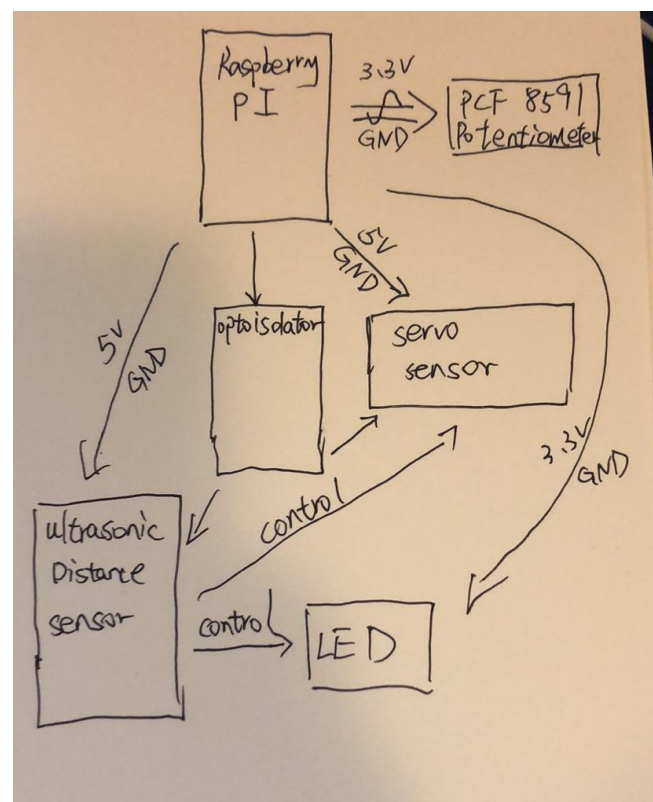 Raspberry
PI
3.3V
GND
PCF 8591
Potentiometer
5V
GND
5V
GND
optoisolator
servo
sensor
3.3V
GND
control
ultrasonic
Distance
sensor
control
LED